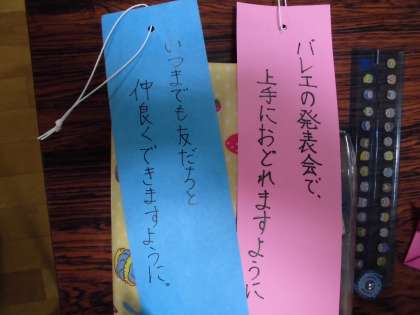 バレエの発表会で、
上手におどれますように
いつまでも友だちと
仲良くできますように。